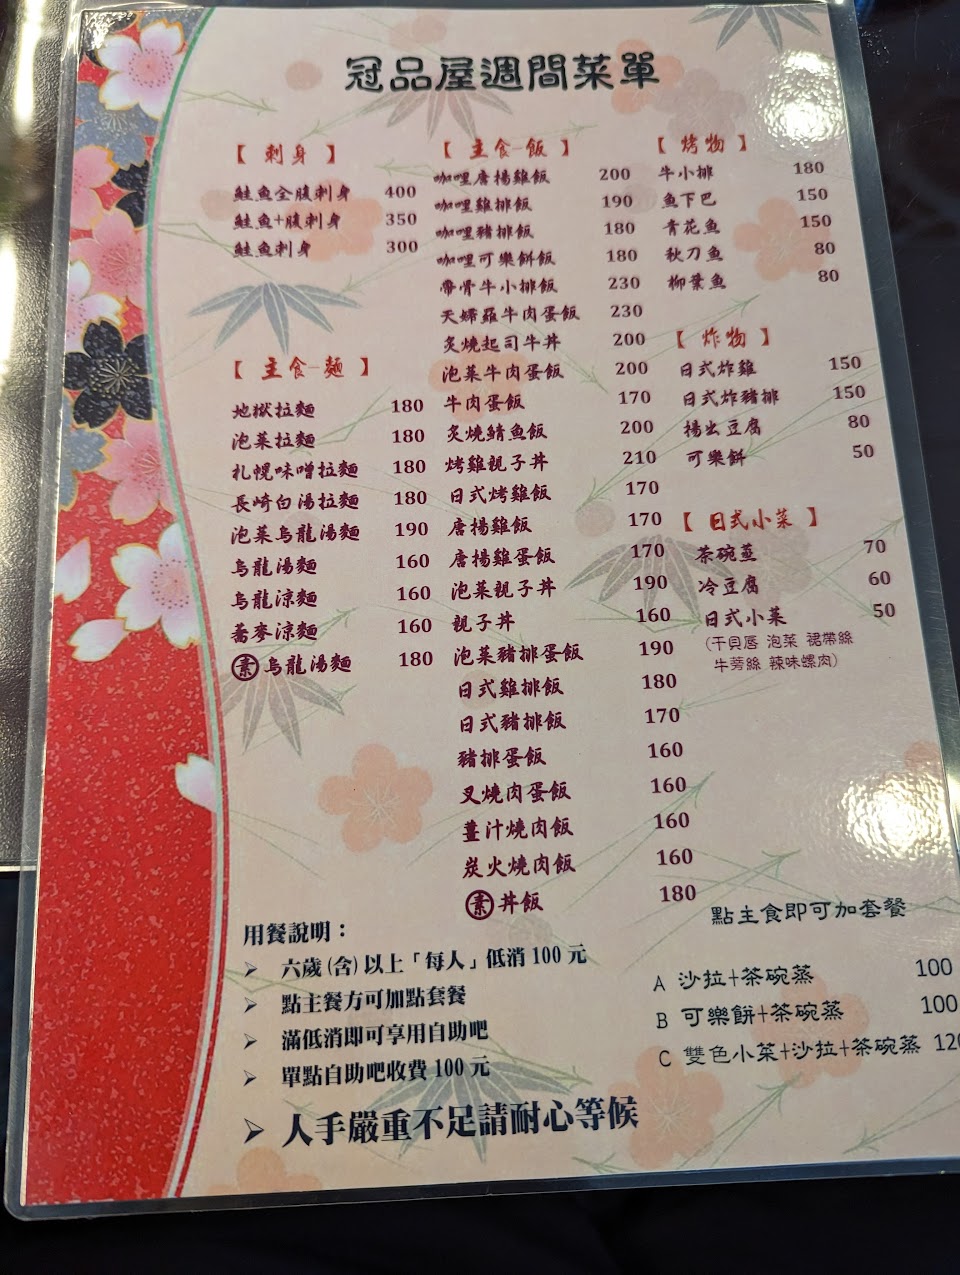 冠品屋週間菜單
【 刺身 】
鮭魚全腹刺身 400
鮭魚+腹刺身 350
鮭魚刺身 300
【 主食-麵 】
地獄拉麵 180
泡菜拉麵 180
札幌味噌拉麵 180
長崎白湯拉麵 180
泡菜烏龍湯麵 190
烏龍湯麵 160
烏龍涼麵 160
蕎麥涼麵 160
素 烏龍湯麵 180
【 主食-飯 】
咖哩唐揚雞飯 200
咖哩雞排飯 190
咖哩豬排飯 180
咖哩可樂餅飯 180
帶骨牛小排飯 230
天婦羅牛肉蛋飯 230
炙燒起司牛丼 200
泡菜牛肉蛋飯 200
牛肉蛋飯 170
炙燒鯖魚飯 200
烤雞親子丼 210
日式烤雞飯 170
唐揚雞飯 170
唐揚雞蛋飯 170
泡菜親子丼 190
親子丼 160
泡菜豬排蛋飯 190
日式雞排飯 180
日式豬排飯 170
豬排蛋飯 160
叉燒肉蛋飯 160
薑汁燒肉飯 160
炭火燒肉飯 160
素 丼飯 180
【 烤物 】
牛小排 180
魚下巴 150
青花魚 150
秋刀魚 80
柳葉魚 80
【 炸物 】
日式炸雞 150
日式炸豬排 150
揚出豆腐 80
可樂餅 50
【 日式小菜 】
茶碗蒸 70
冷豆腐 60
日式小菜 50
(干貝唇 泡菜 裙帶絲
牛蒡絲 辣味螺肉)
點主食即可加套餐
A 沙拉+茶碗蒸 100
B 可樂餅+茶碗蒸 100
C 雙色小菜+沙拉+茶碗蒸 120
用餐說明：
➢ 六歲(含)以上「每人」低消 100 元
➢ 點主餐方可加點套餐
➢ 滿低消即可享用自助吧
➢ 單點自助吧收費 100 元
➢ 人手嚴重不足請耐心等候